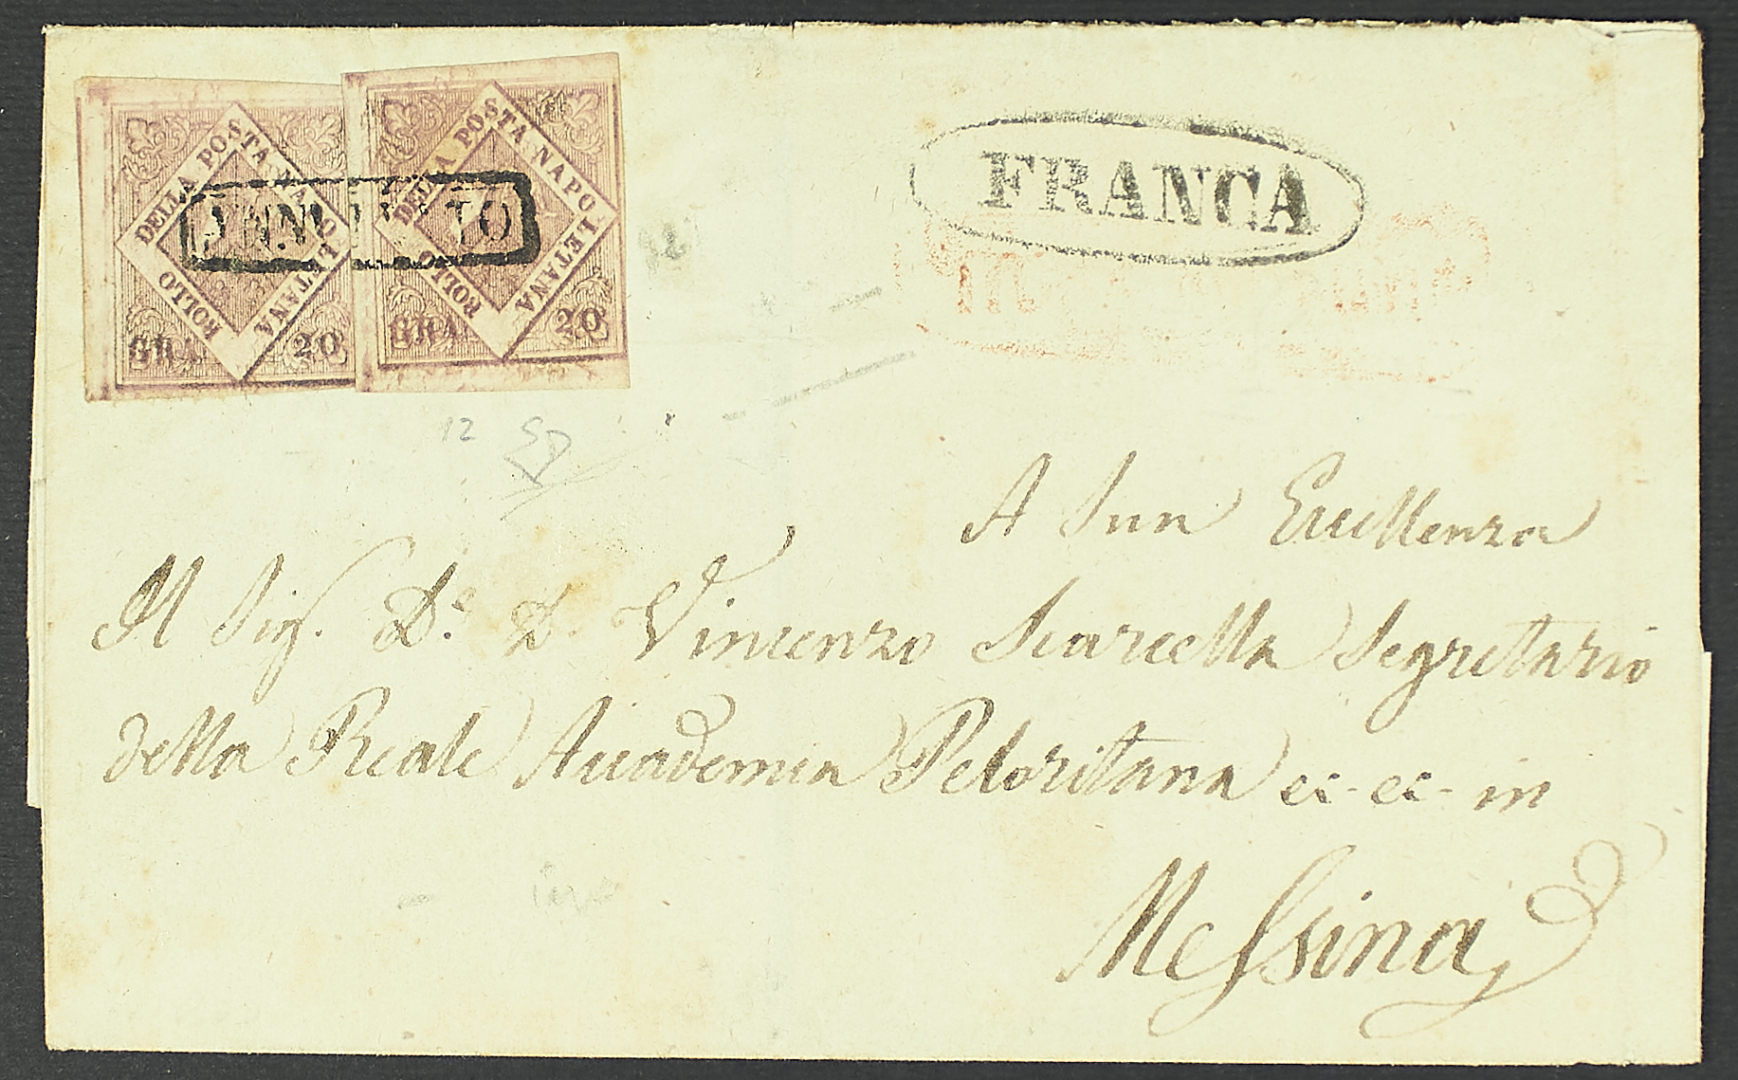 BOLLO DELLA POSTA NAPOLETANA
GRA 20
BOLLO DELLA POSTA NAPOLETANA
GRA 20
ANNULLATO
FRANCA
12
A Sua Eccellenza
Al Sig. D.e D. Vincenzo Scarcella Segretario
della Reale Accademia Peloritana ec. ec. in
Messina